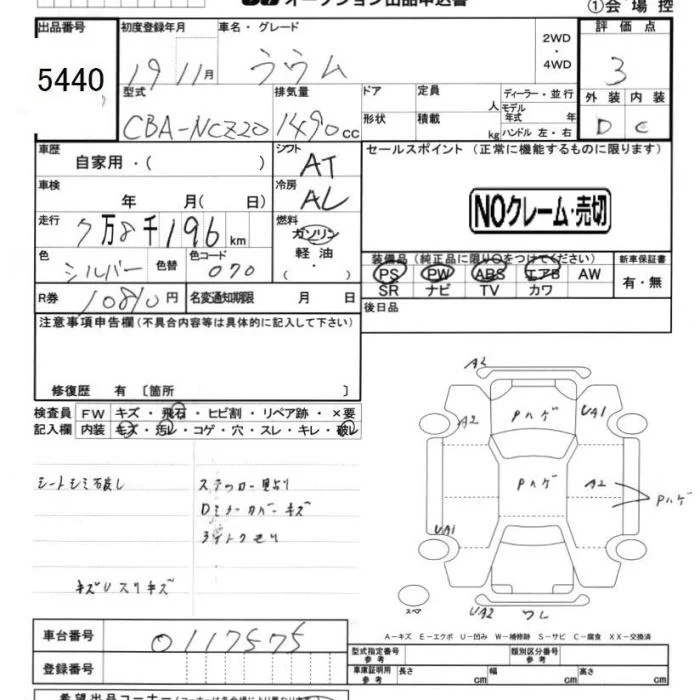 オークション出品申込書
①会場控
出品番号
5440
初度登録年月
19 11月
車名・グレード
ラウム
2WD
・
4WD
評価点
3
型式
CBA-NCZ20
排気量
1490cc
ドア
形状
定員
人
積載
kg
ディーラー・並行
モデル年式 年
ハンドル 左・右
外装 内装
D C
車歴
自家用・( )
シフト
AT
セールスポイント (正常に機能するものに限ります)
車検
年 月( 日)
冷房
AL
NOクレーム・売切
走行
7万8千196km
燃料
ガソリン
軽油
( ・ )
色
シルバー
色替
色コード
070
装備品(純正品に限り○をつけてください)
PS PW ABS エアB AW
SR ナビ TV カワ
新車保証書
有・無
R券
10810円
名変通知期限 月 日
後日品
注意事項申告欄(不具合内容等は具体的に記入して下さい)
修復歴 有 〔箇所 〕
検査員記入欄
FW キズ・飛石・ヒビ割・リペア跡・×要
内装 キズ・汚レ・コゲ・穴・スレ・キレ・破レ
シートシミ
Dミラーカバーキズ
キズUスリキズ
A2
A2
Pハゲ
UA1
Pハゲ
A2
Pハゲ
UA1
UA2
ワレ
スペア
A－キズ E－エクボ U－凹み W－補修跡 S－サビ C－腐食 XX－交換済
車台番号
0117575
登録番号
型式指定番号
参考
類別区分番号
参考
車庫証明用
参考
長さ cm
幅 cm
高さ cm
希望出品コーナー